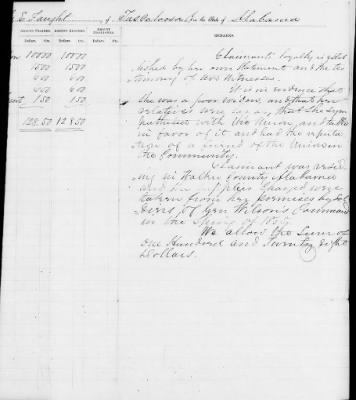 E. Faught of Tuscaloosa for the State of Alabama
AMOUNT CLAIMED. AMOUNT ALLOWED. AMOUNT DISALLOWED. REMARKS.
Dollars. Cts. Dollars. Cts. Dollars. Cts.
100 00 100 00
15 00 15 00
6 00 6 00
6 00 6 00
1 50 1 50
128.50 128.50
Claimants loyalty is estab
lished by her own statement and the tes
timony of two witnesses.
It is in evidence that
she was a poor widow, and that her
relatives were union, that she sym
pathized with the Union, and talked
in favor of it and had the reputa
tion of a friend of the Union in
the Community.
Claimant was resid
ing in Walker County Alabama
and the supplies charged were
taken from her premises by Sol
diers of Gen Wilson's Command
in the Spring of 1865.
We allow the sum of
One Hundred and Twenty Eight
Dollars.